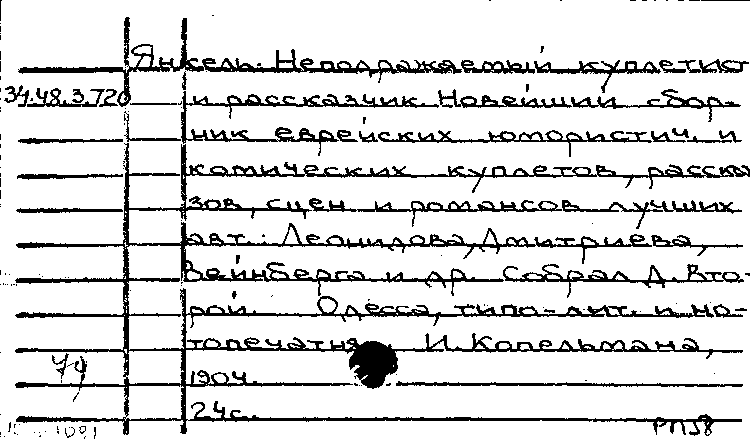 Янкель. Неподражаемый куплетист
34.48.3.720 и рассказчик. Новейший сбор-
ник еврейских юмористич. и
комических куплетов, расска
зов, сцен и романсов лучших
авт.: Леонидова, Дмитриева,
Вейнберга и др. Собрал Д. Вто-
рой. Одесса, типо-лит. и но-
топечатня И. Копельмана,
1904.
24с.